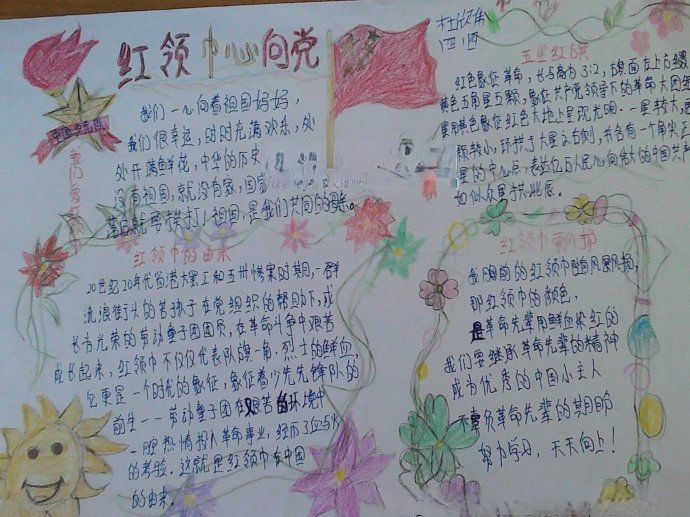 红领巾心向党
我们一心向着祖国妈妈，
我们很幸运，时时充满欢乐，处
处开满鲜花，中华的历史
没有祖国，就没有家，国家
落后就要挨打！祖国，是我们共同的
四、四
五星红旗
红色象征革命，长与高为3:2，旗面左上方缀
黄色五角星五颗，象征共产党领导下的革命大团结
星用黄色象征红色大地上呈现光明。一星较大，四
颗较小，环拱于大星之右侧，并各有一个角尖正
星的中心点，表达亿万人民心向伟大的中国共产
如似众星拱北辰。
红领巾的由来
20世纪20年代省港大罢工和五卅惨案时期，一群
流浪街头的苦孩子在党组织的帮助下，成
长为光荣的劳动童子团团员，在革命斗争中艰苦
成长起来，红领巾不仅仅代表队旗一角，烈士的鲜血
它更是一个时代的象征，象征着少先先锋队的
前生——劳动童子团在艰苦的环境中
一腔热情投入革命事业，经历了血与火
的考验。这就是红领巾在中国
的由来。
红领巾飘扬
是胸前的红领巾随风飘扬，
那红领巾的颜色，
是革命先辈用鲜血染红的
我们要继承革命先辈的精神
成为优秀的中国小主人
不辜负革命先辈的期盼
努力学习，天天向上！